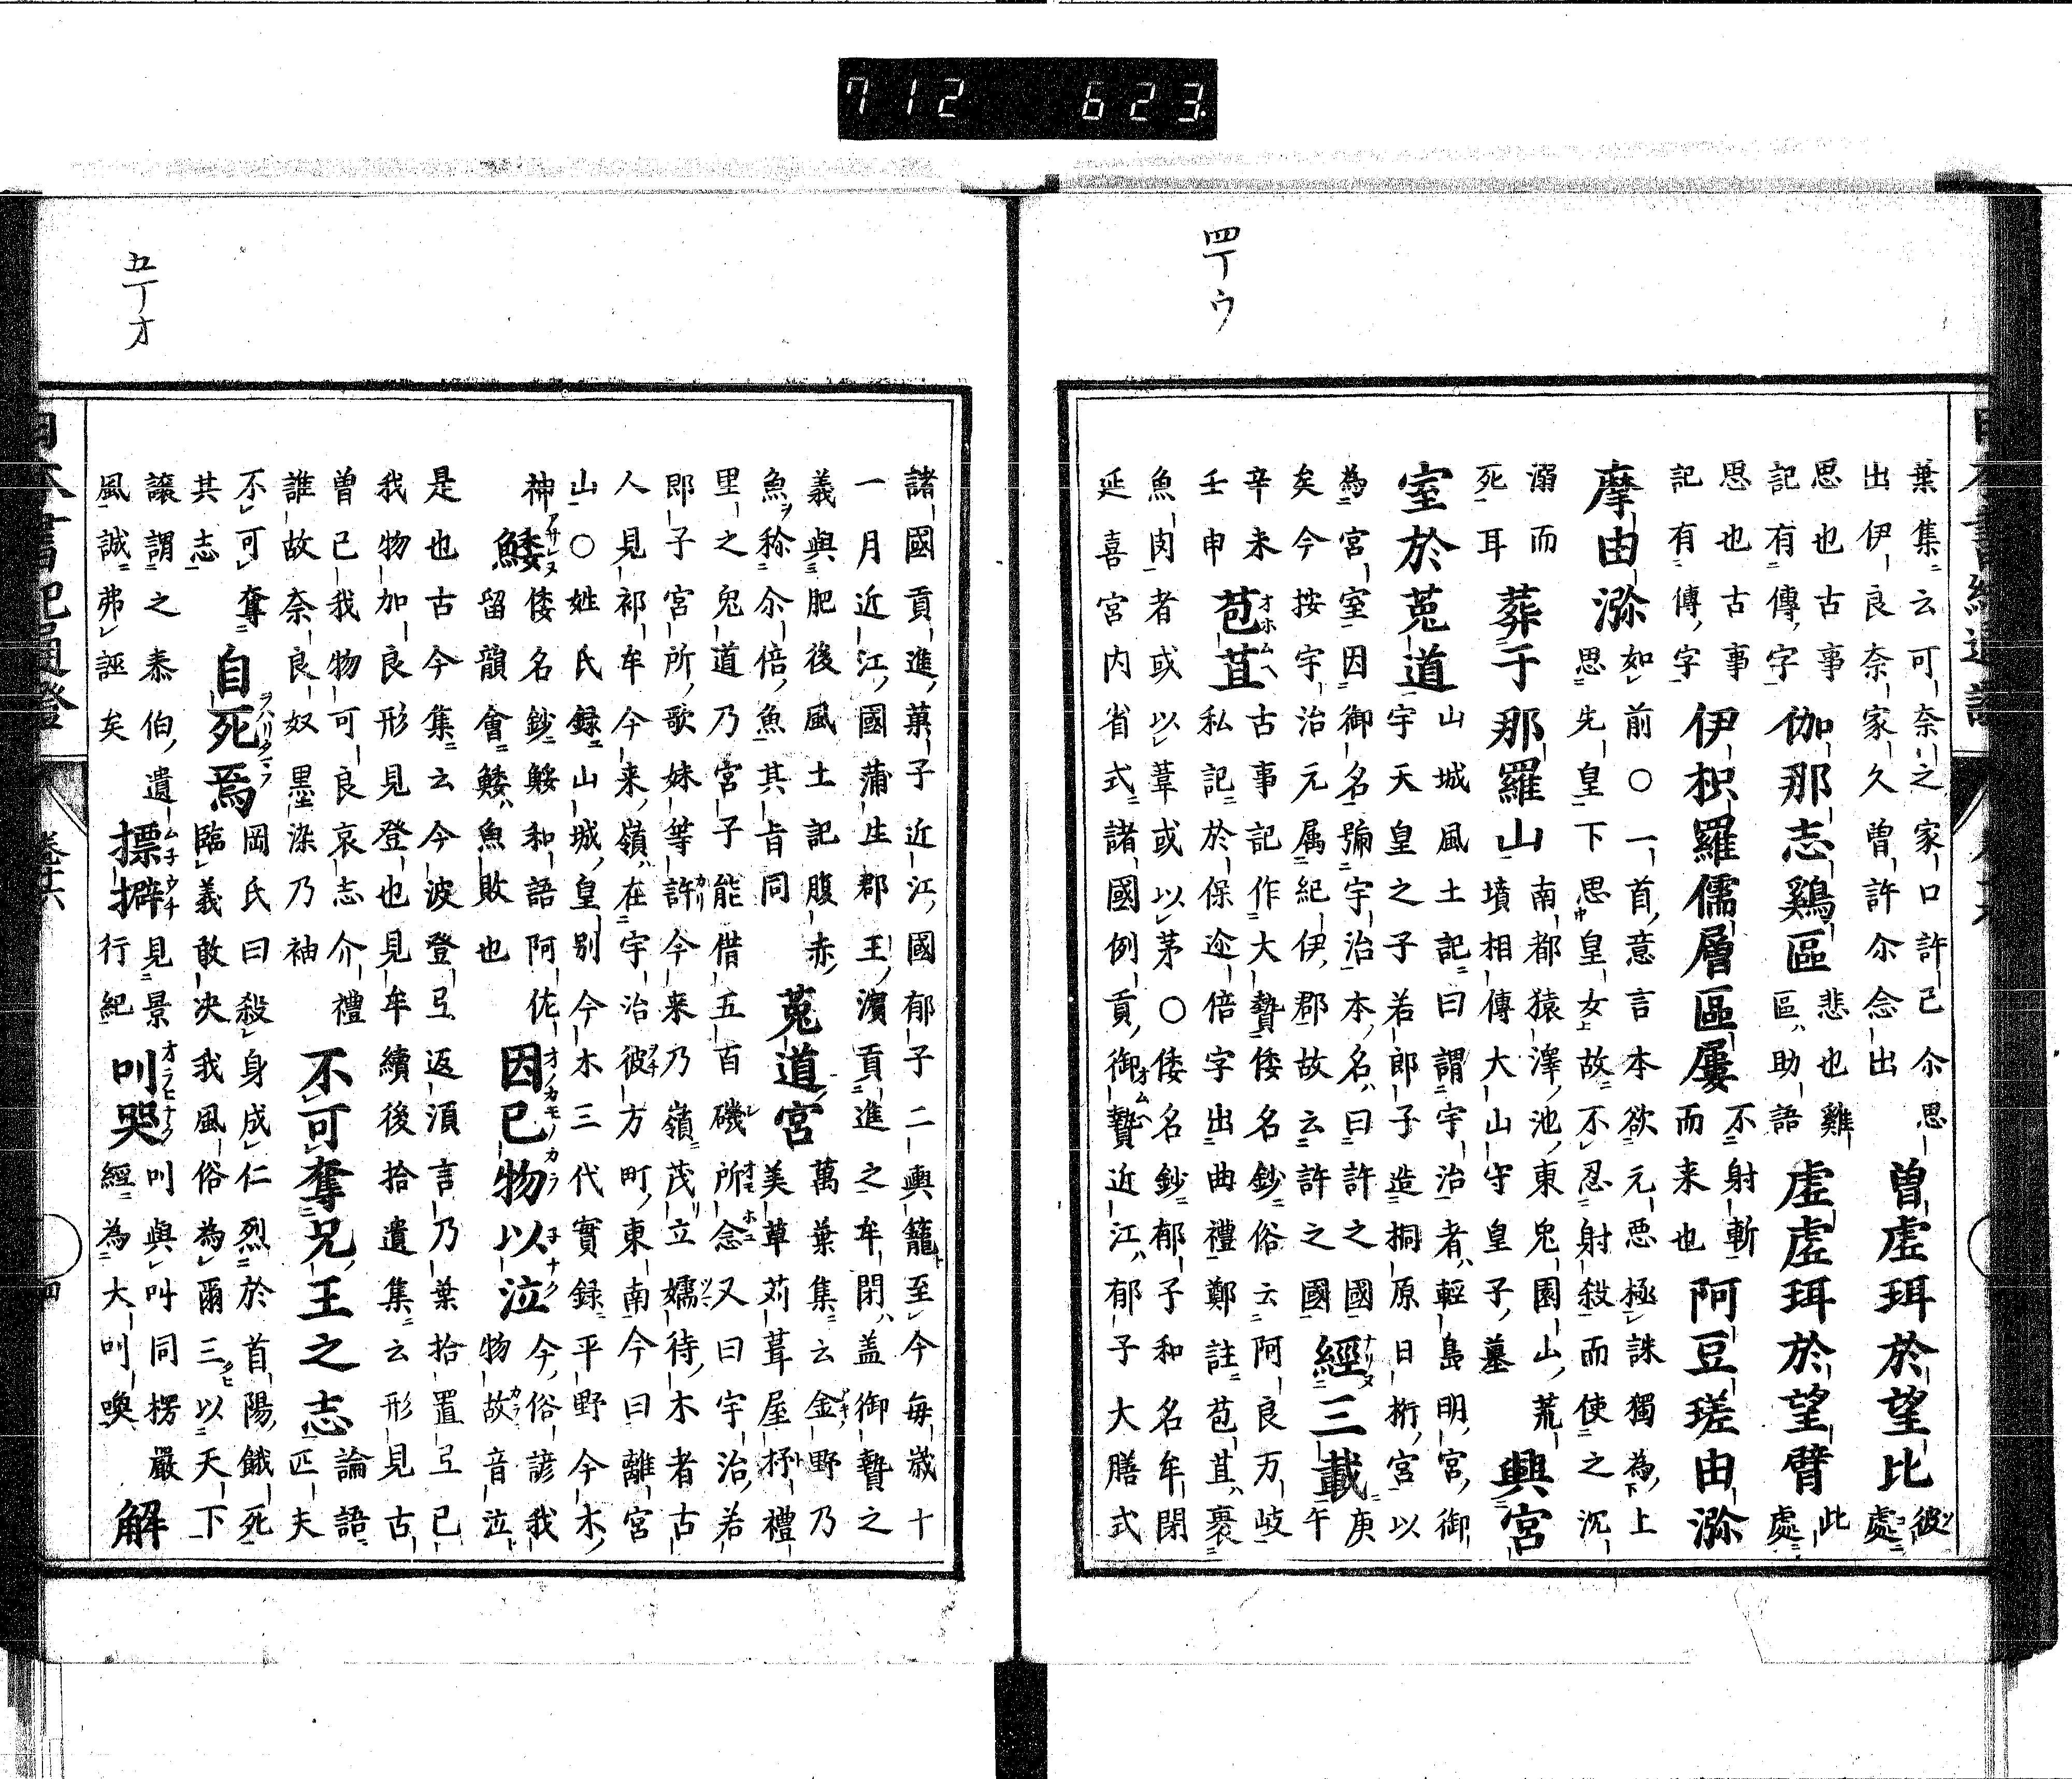 四丁ウ
葉集云可奈之家口許己尒思
出伊良奈家久曽許尒念出
曽虚珥於望比
彼
處
思也古事
記有傳字
伽那志鶏區
悲也雞
區助語
虚虚珥於望臂
此
處
思也古事
記有傳字
伊枳羅儒層區屢
不射斬
而来也
阿豆瑳由瀰
摩由瀰
如前〇一首意言本欲元惡極誅獨為上
思先皇下思皇女故不忍射殺而使之沉
溺而
死耳
葬于那羅山
南都猿澤池東兎園山荒
墳相傳大山守皇子墓
興宮
室於菟道
山城風土記曰謂宇治者輕島明宮御
宇天皇之子若郎子造桐原日桁宮以
為宮室因御名號宇治本名曰許之國
矣今按宇治元属紀伊郡故云許之國
經三載
庚
午
辛未
壬申
苞苴
古事記作大贄倭名鈔俗云阿良万岐
私記於保迩倍字出曲禮鄭註苞苴裹
魚肉者或以葦或以茅〇倭名鈔郁子和名牟閇
延喜宮内省式諸國例貢御贄近江郁子大膳式
五丁オ
諸國貢進菓子近江國郁子二輿籠至今毎歳十
一月近江國蒲生郡王濱貢進之牟閇盖御贄之
義與肥後風土記腹赤
魚称尒倍魚其旨同
菟道宮
萬葉集云金野乃
美草苅葺屋杼禮
里之兔道乃宮子能借五百磯所念又曰宇治若
郎子宮所歌妹等許今来乃嶺茂立嬬待木者古
人見祁牟今来嶺在宇治彼方町東南今曰離宮
山〇姓氏録山城皇別今木三代實録平野今木
神
鯘
倭名鈔鮾和語阿佐
留韻會鯘魚敗也
因已物以泣
今俗諺我
物故音泣
是也古今集云今波登弖返須言乃葉拾置弖已
我物加良形見登也見牟續後拾遺集云形見古
曽已我物可良哀志介禮
誰故奈良奴墨染乃袖
不可奪兄王之志
論語
匹夫
不可奪
其志
自死焉
岡氏曰殺身成仁烈於首陽餓死
臨義敢决我風俗為爾三以天下
譲謂之泰伯遺
風誠弗誣矣
摽擗
見景
行紀
叫哭
叫與叫同楞嚴
經為大叫喚
解